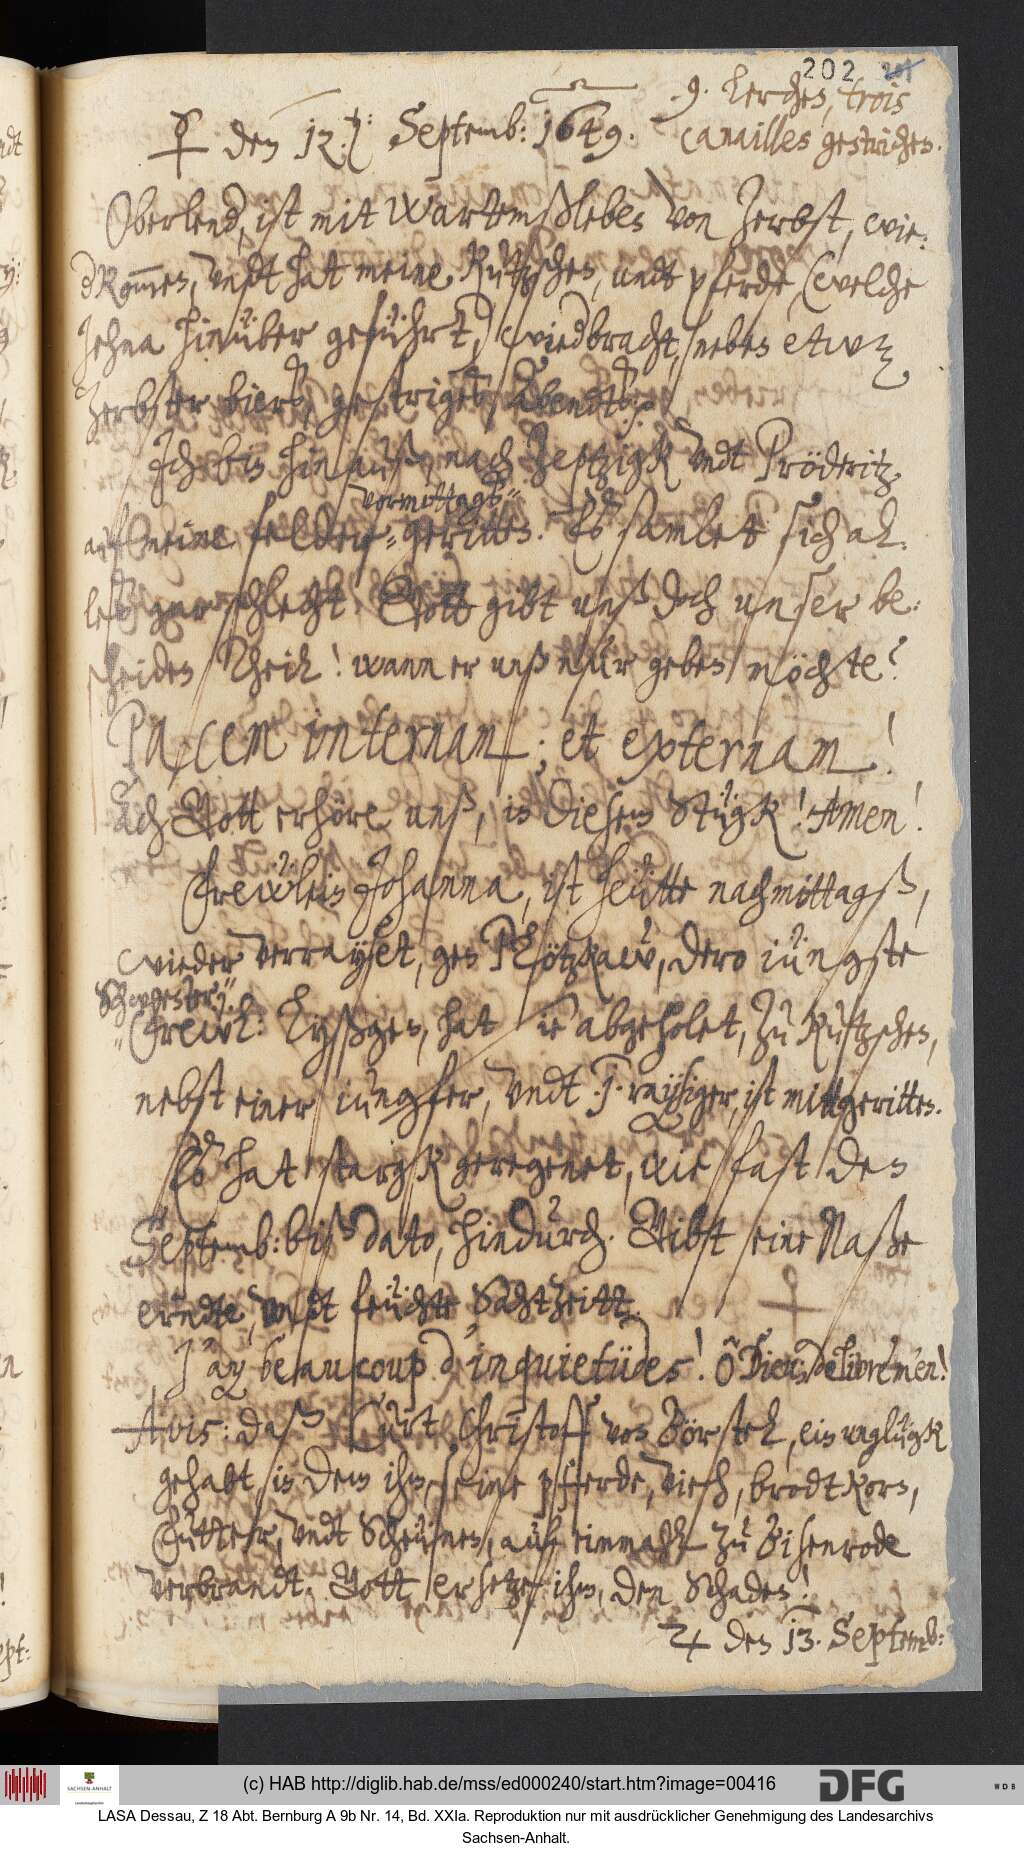 202 201
9. Lerchen, trois
☿ den 12.t: Septemb: 1649. canailles gestrichen.
Oberlend, ist mit Wartemßleben von Zerbst, wie:
der kommen, undt hat meine Kutzschen, undt pferde, (welche
Jehna hinüber geführt,) wiederbracht, neben etwas
Zerbster biers, gestriges Abendts.
Ich bin hinauß nach Zeptzigk undt Pröderitz,
vormittags
auf meine felder geritten. Es samlet sich al:
les gar schlecht. Gott gibt unß doch unser be:
scheiden theil! wann er unß nur geben möchte?
Pacem internam; et externam!
Ach Gott erhöre unß, in diesem Stügk! Amen!
Frewlein Johanna, ist heütte nachmittagß,
wieder verrayset, gen Plötzkaw, dero iüngste
Schwester,
Frewl: Lyßgen, hat sie abgeholet, zu Kutzschen,
nebst einer iungfer, undt 1. raysiger, ist mittgeritten.
Es hat stargk geregenet, wie fast den
Septemb: biß dato, hindurch. Gibt eine Naße
erndte, undt feüchte Sahtzeitt.
J'ay beaucoup d'inquietüdes! ô Dieu; delibre m'en!
Avis: daß Curt Christoff von Börstel, ein unglügk
gehabt, in dem ihm, seine pferde, vieh, brodtkorn,
Futter, undt Scheünen, auf einmahl zu Ilsenrode
verbrandt. Gott ersetze ihm, den Schaden!
♃ den 13. Septemb:
(c) HAB http://diglib.hab.de/mss/ed000240/start.htm?image=00416
DFG
WDB
SACHSEN-ANHALT
LASA Dessau, Z 18 Abt. Bernburg A 9b Nr. 14, Bd. XXIa. Reproduktion nur mit ausdrücklicher Genehmigung des Landesarchivs
Sachsen-Anhalt.